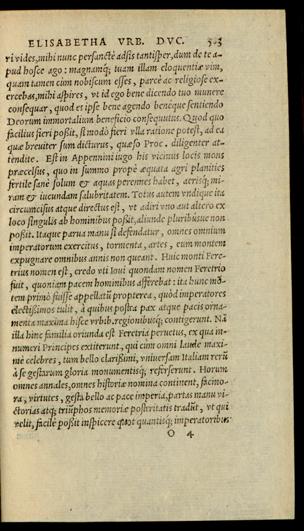 ELISABETHA VRB. DVC. 53
ri vides, mihi nunc persanctè adsis tantisper, dum de te a-
pud hosce ago: magnamq; tuam illam eloquentiæ vim,
quam tamen cùm nobiscum esses, parcè ac religiosè ex-
ercebas, mihi aspires, vt id ego bene dicendo tuo munere
consequar, quod es ipse bene agendo beneque sentiendo
Deorum immortalium beneficio consequutus. Quod quo
facilius fieri possit, si modò fieri vlla ratione potest, ad ea
quæ breuiter sum dicturus, quæso Proc. diligenter at-
tendite. Est in Appennini iugo his vicinus locis mons
præcelsus, quo in summo propè æquata agri planities
fertile sanè solum & aquas perennes habet, aerisq; mi-
ram & iucundam salubritatem. Totus autem vndique ita
circuncisus atque directus est, vt adiri vno aut altero ex
loco singulis ab hominibus possit, aliunde pluribusue non
possit. Itaque parua manu si defendatur, omnes omnium
imperatorum exercitus, tormenta, artes, eum montem
expugnare omnibus annis non queant. Huic monti Fere-
trius nomen est, credo vti Ioui quondam nomen Feretrio
fuit, quoniam pacem hominibus afferebat: ita hunc mō-
tem primò fuisse appellatū propterea, quòd imperatores
electissimos tulit, à quibus postea pax atque pacis orna-
menta maxima hisce vrbib. regionibusq; contigerunt. Nā
illa hinc familia oriunda est Feretria peruetus, ex qua in-
numeri Principes extiterunt, qui cùm omni laude maxi-
mè celebres, tum bello clarissimi, vniuersam Italiam rerū
à se gestarum gloria monumentisq; refersserunt. Horum
omnes annales, omnes historiæ nomina continent, facino-
ra, virtutes, gesta bello ac pace imperia, partas manu vi-
ctorias atq; triūphos memoriæ posteritatis tradūt, vt qui
velit, facilè possit inspicere quot quantisq; imperatoribus
O 4